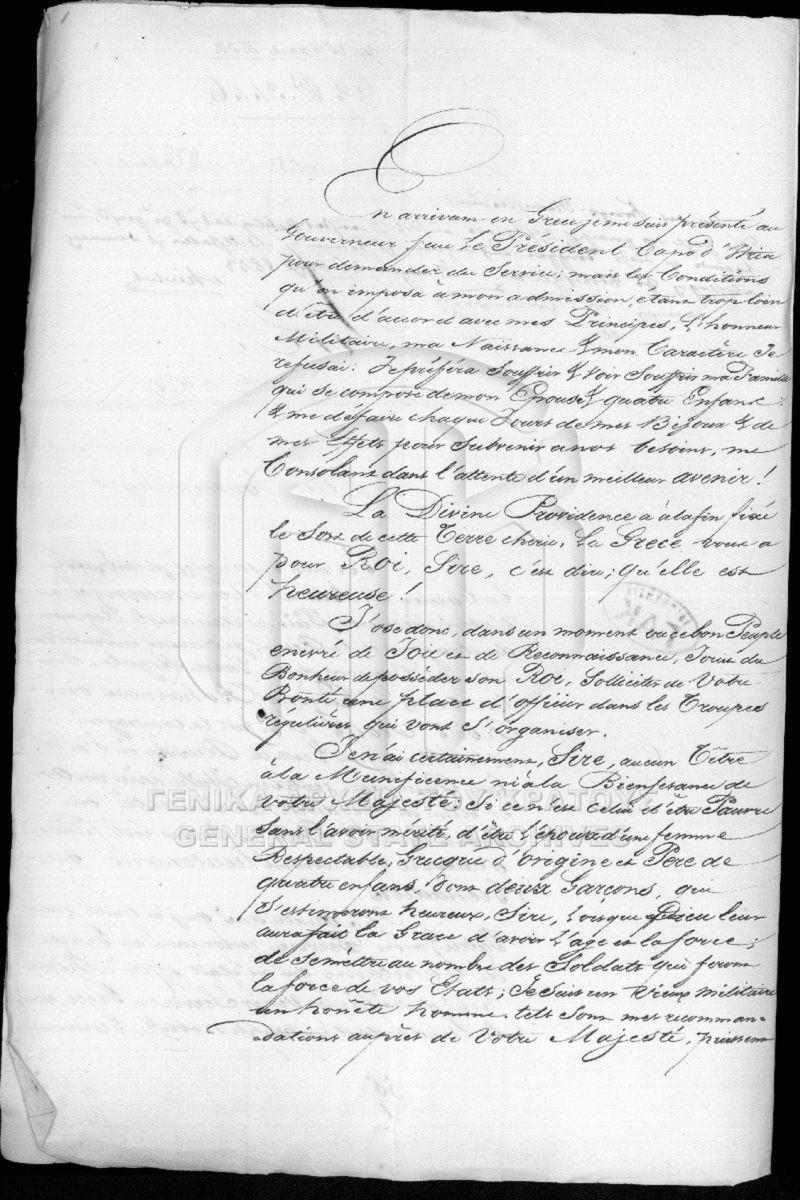 En arrivant en Grece je me suis présenté au
Gouverneur feu le Président Capo d'Istria
pour demander du Service; mais les Conditions
qu'on imposa à mon admission, étant trop loin
d'être d'accord avec mes Principes, l'honneur
Militaire, ma Naissance & mon Caractère Je
refusai: Je préféra Souffrir & Voir Souffrir ma Famille
qui se compose de mon Epouse & quatre Enfans:
& me défaire chaque Jours de mes Bijoux & de
mes Effets pour subvenir a nos besoins, me
Consolant dans l'attente d'un meilleur avenir!
La Divine Providence a à la fin fixé
le Sort de cette Terre cherie. La Grece vous a
pour Roi, Sire, c'est dire; qu'elle est
heureuse!
J'ose donc, dans un moment ou ce bon Peuple
enivré de Joie et de Reconnaissance, Jouit du
Bonheur de posséder son Roi, Solliciter de Votre
Bonté une place d'officier dans les Troupes
régulières qui vont S'organiser.
Je n'ai certainement, Sire, aucun Têtre
à la Munificence ni à la Bienfesance de
Votre Majesté; Si ce n'est Celui d'être Pauvre
Sans l'avoir mérité, d'être l'époux d'une femme
Respectable, Grecque d'origine et Père de
quatre enfans, dont deux Garçons, qui
S'estimeront heureux, Sire, Lorsque Dieu leur
aura fait la Grace d'avoir l'age et la force;
de Se mettre au nombre des Soldats qui feront
la force de vos Etats; Je suis un Vieux militaire
un honête homme. tels sont mes recomman-
dations auprès de Votre Majesté, puissent
ΓΕΝΙΚΑ ΑΡΧΕΙΑ ΤΟΥ ΚΡΑΤΟΥΣ
GENERAL STATE ARCHIVES